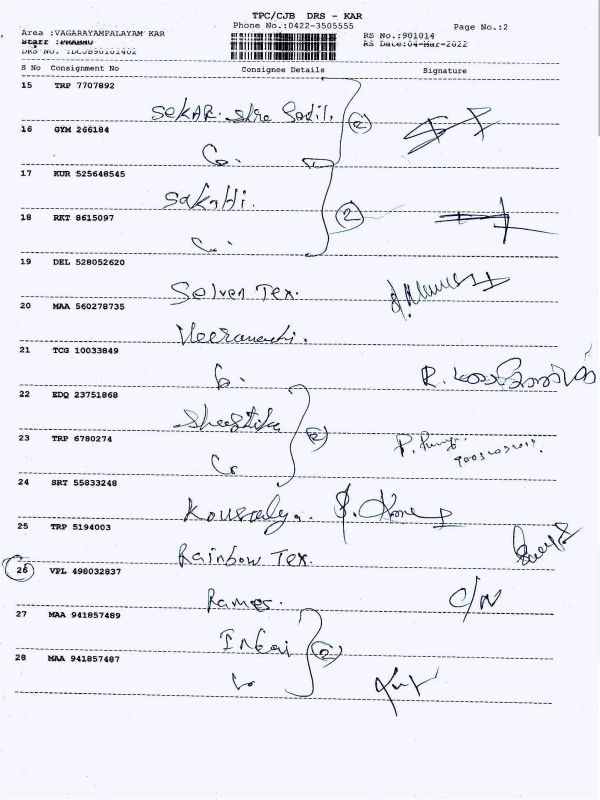 TPC/CJB DRS - KAR
Phone No.:0422-3505555
Page No.:2
Area :VAGARAYAMPALAYAM KAR
RS No.:901014
Staff :PRABHU
RS Date:04-Mar-2022
DRS No. :DCJB90101402
S No Consignment No Consignee Details Signature
15 TRP 7707892
SEKAR. Stre
2
16 GYM 266184
Co.
17 KUR 525648545
Sakthi.
2
18 RKT 8615097
Co.
19 DEL 528052620
Selven Tex.
20 MAA 560278735
Veeramathi.
21 TCG 10033849
Co. R.
22 EDQ 23751868
Shastika
2
23 TRP 6780274
Co P.
24 SRT 55833248
Kousalya.
25 TRP 5194003
Rainbow Tex.
26 VPL 498032837
Rames. C/N
27 MAA 941857489
2
28 MAA 941857487
Co